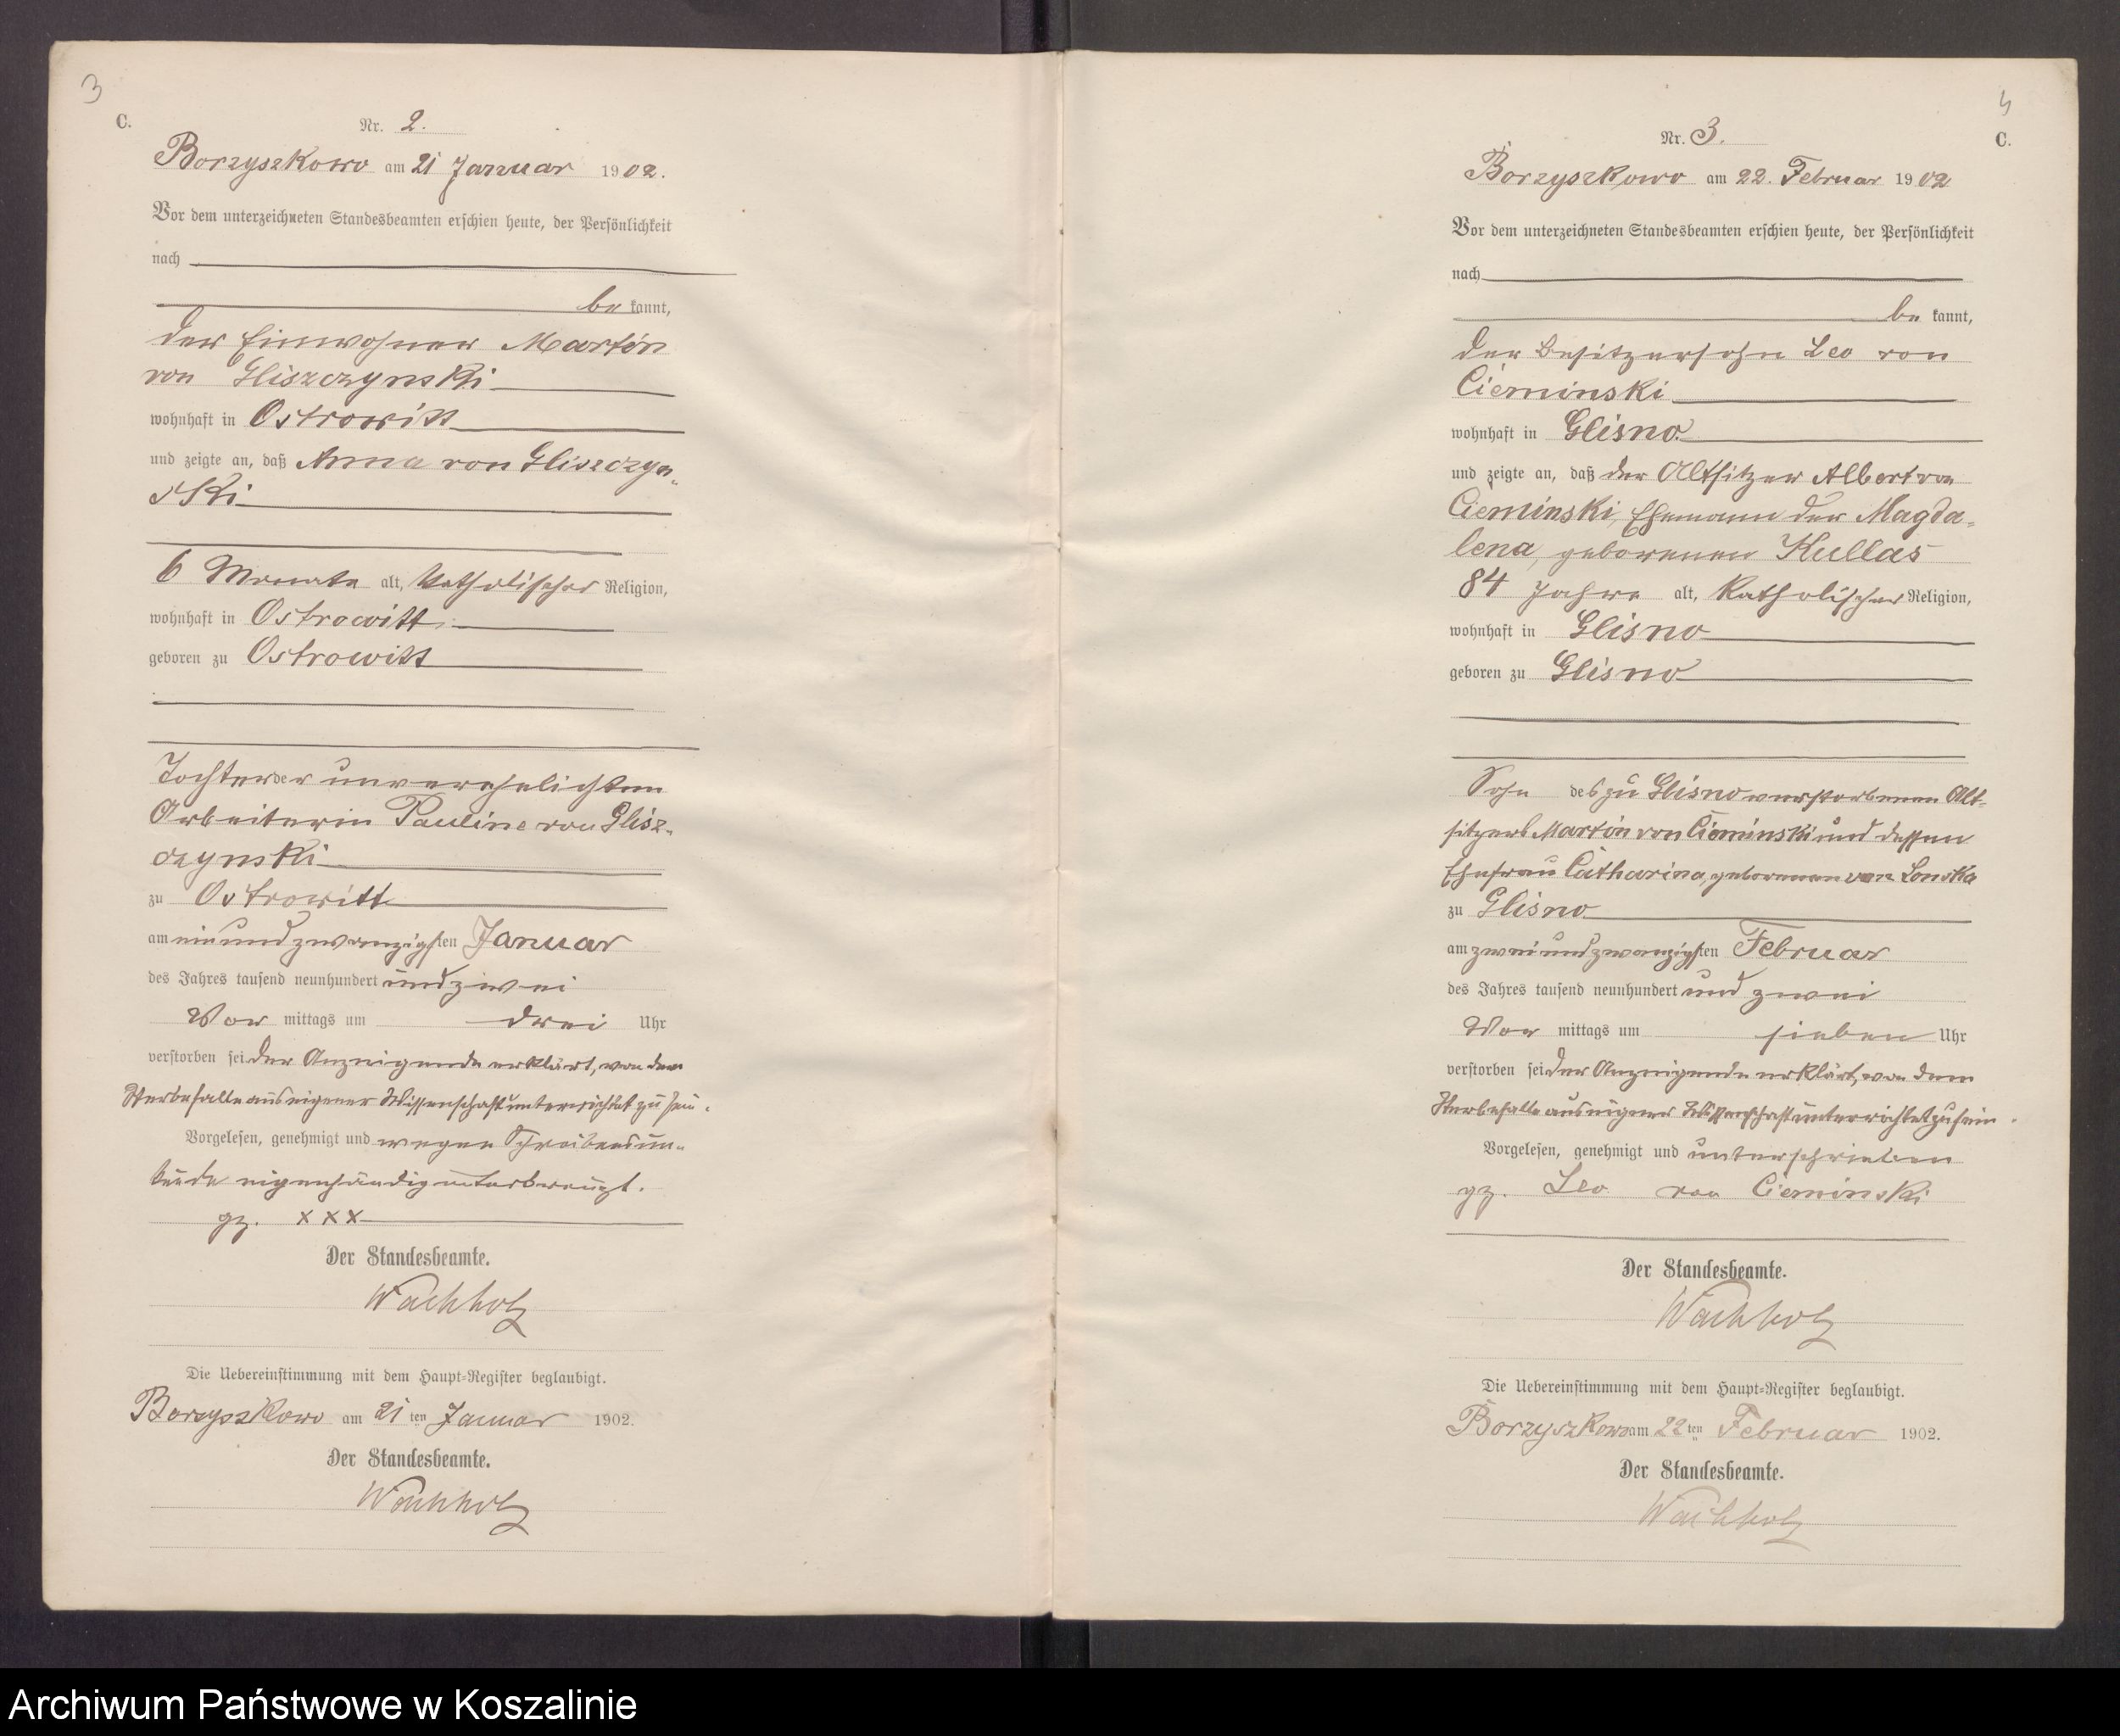 3
C.
Nr. 2.
Borzyszkowo am 21 Januar 1902.
Vor dem unterzeichneten Standesbeamten erschien heute, der Persönlichkeit
nach
be kannt,
der Einwohner Martin
von Gliszczynski
wohnhaft in Ostrowitt
und zeigte an, daß Anna von Gliszczyn-
ski
6 Monate alt, katholischer Religion,
wohnhaft in Ostrowitt
geboren zu Ostrowitt
Tochter der unverehelichten
Arbeiterin Pauline von Glisz-
czynski
zu Ostrowitt
am einundzwanzigsten Januar
des Jahres tausend neunhundert und zwei
Vor mittags um drei Uhr
verstorben sei. Der Anzeigende erklärt, von dem
Sterbefalle aus eigener Wissenschaft unterrichtet zu sein.
Vorgelesen, genehmigt und wegen Schreibensun-
kunde eigenhändig unterkreuzt.
gz. x x x
Der Standesbeamte.
Wachholz
Die Uebereinstimmung mit dem Haupt-Register beglaubigt.
Borzyszkowo am 21 ten Januar 1902.
Der Standesbeamte.
Wachholz
4
C.
Nr. 3.
Borzyszkowo am 22. Februar 1902
Vor dem unterzeichneten Standesbeamten erschien heute, der Persönlichkeit
nach
be kannt,
der Besitzersohn Leo von
Cieminski
wohnhaft in Glisno
und zeigte an, daß der Altsitzer Albert von
Cieminski, Ehemann der Magda-
lena, geborenen Kullas
84 Jahre alt, katholischer Religion,
wohnhaft in Glisno
geboren zu Glisno
Sohn des zu Glisno verstorbenen Alt-
sitzers Martin von Cieminski und dessen
Ehefrau Catharina, geborenen von Lonska
zu Glisno
am zweiundzwanzigsten Februar
des Jahres tausend neunhundert und zwei
Vor mittags um sieben Uhr
verstorben sei. Der Anzeigende erklärt, von dem
Sterbefalle aus eigener Wissenschaft unterrichtet zu sein.
Vorgelesen, genehmigt und unterschrieben
gz. Leo von Cieminski
Der Standesbeamte.
Wachholz
Die Uebereinstimmung mit dem Haupt-Register beglaubigt.
Borzyszkowo am 22 ten Februar 1902.
Der Standesbeamte.
Wachholz
Archiwum Państwowe w Koszalinie